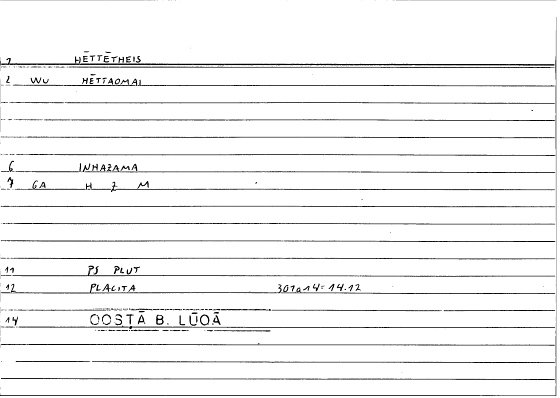 1 HĒTTĒTHEIS
2 WU HĒTTAOMAI
6 INHAẒAMA
7 GA H Ẓ M
11 PS PLUT
12 PLACITA 301a14=14.12
14 QOSṬĀ B. LŪQĀ